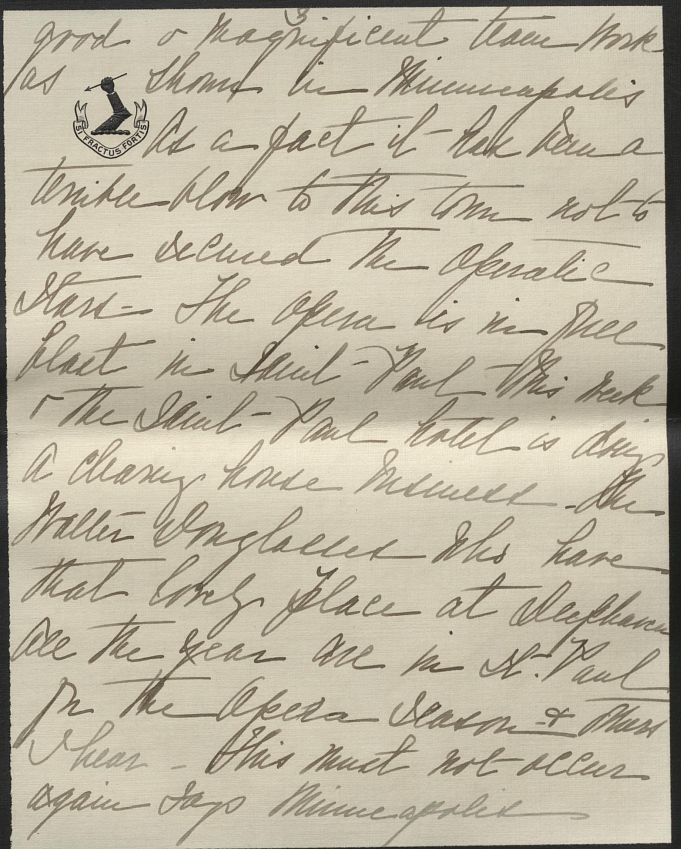 3
good & magnificent team work
as shown in Minneapolis
SI FRACTUS FORTIS
As a fact it has been a
terrible blow to this town not to
have secured the Operatic
Stars - The opera is in full
blast in Saint-Paul this week
& the Saint-Paul hotel is doing
a clearing house business - the
Walter Douglasses who have
that lovely place at Deephaven
all the year are in St. Paul
for the Opera Season &
I hear - This must not occur
again says Minneapolis